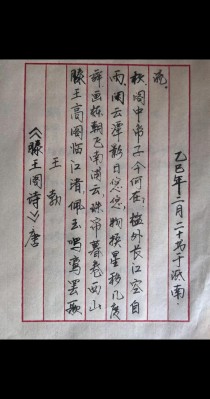 《滕王阁诗》唐
王勃
滕王高阁临江渚佩玉鸣鸾罢歌
舞画栋朝飞南浦云珠帘暮卷西山
雨闲云潭影日悠悠物换星移几度
秋阁中帝子今何在;槛外长江空自
流。
乙巳年二月二十书于济南.